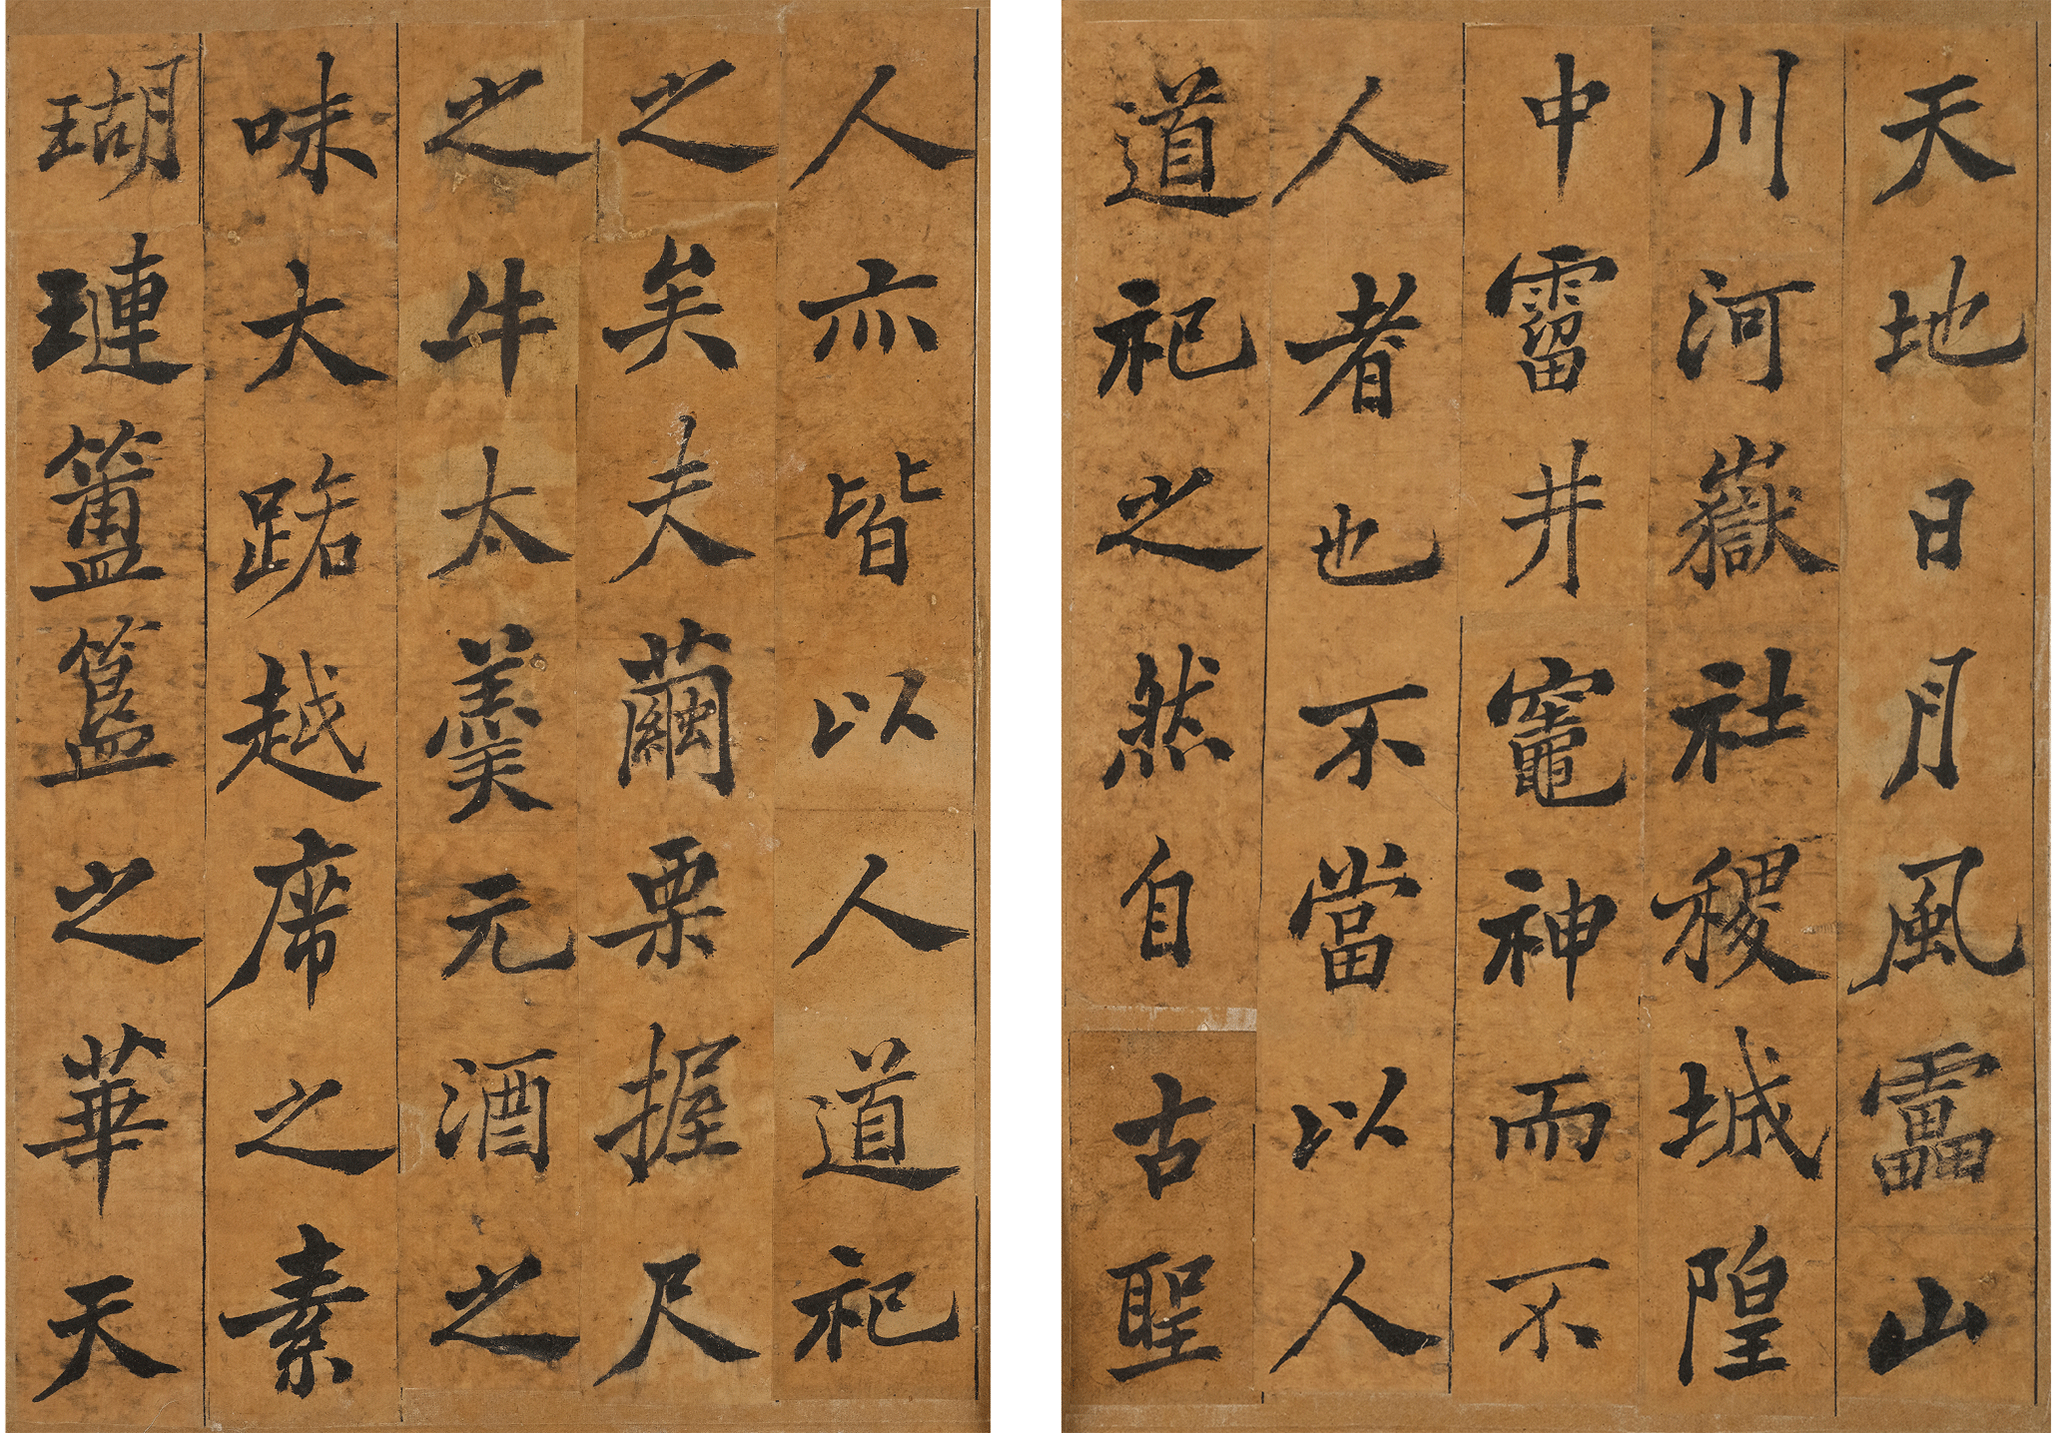 天地日月風靁山
川河嶽社稷城隍
中霤井竈神而不
人者也不當以人
道祀之然自古聖
人亦皆以人道祀
之矣夫繭栗握尺
之牛太羹元酒之
味大路越席之素
瑚璉簠簋之華天